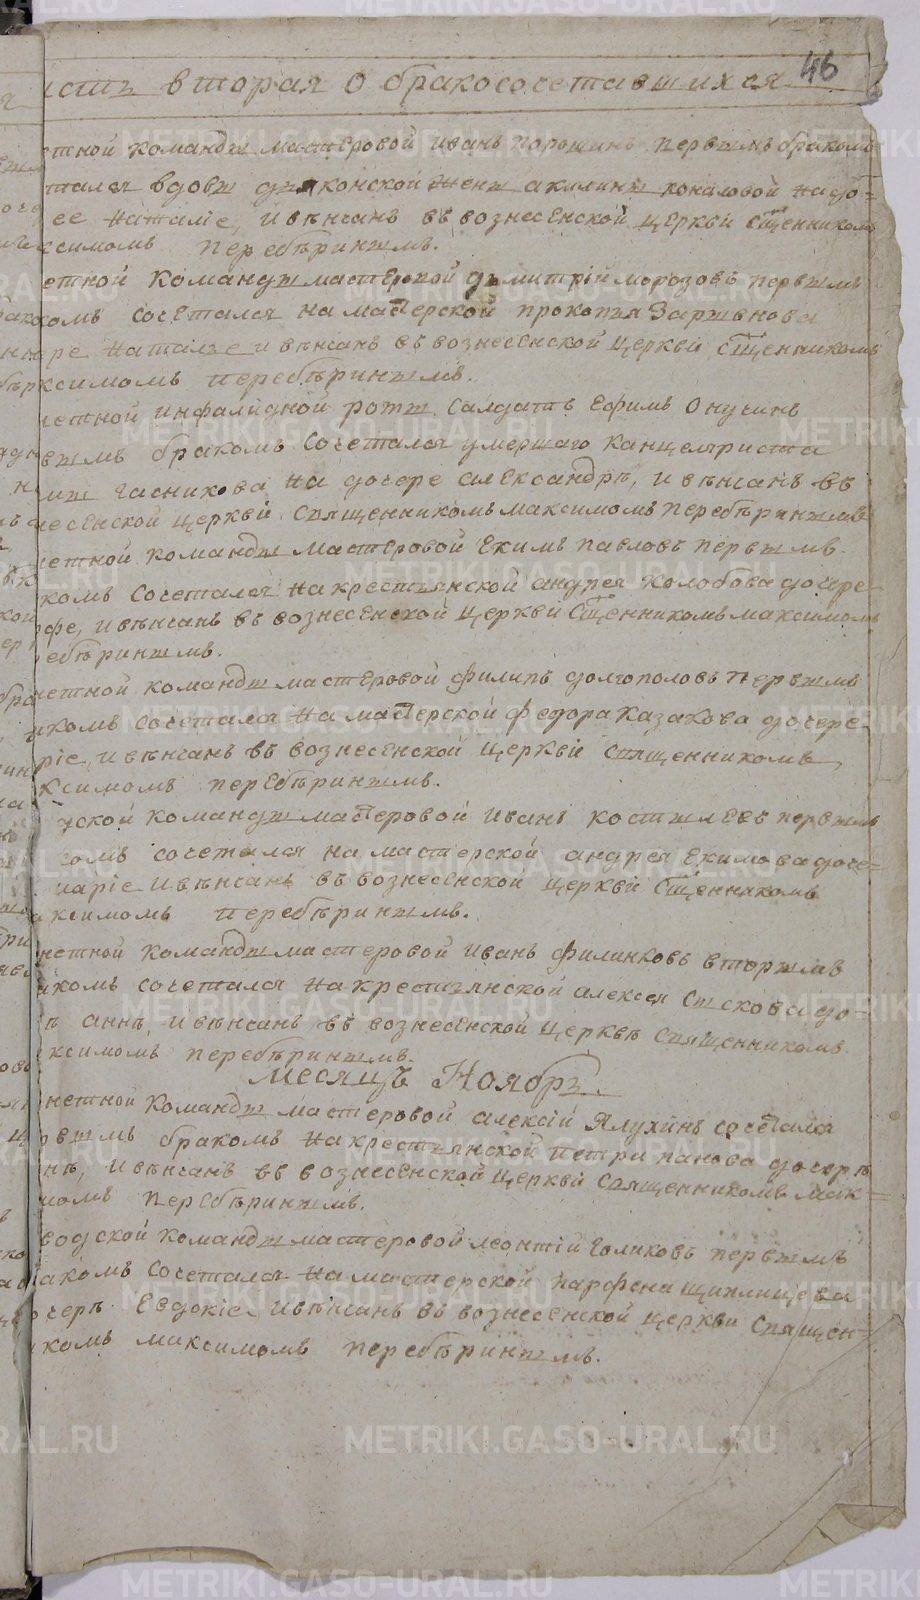 46
вторая О бракосочетавшихся
команды мастеровой иванъ порошинъ первымъ бракомъ
вдовы дьяконской жены акилины коноловой на до=
ее наталіе, и венчанъ въ вознесенской церкви сщенникомъ
ксимомъ перебѣринымъ.
команды мастеровой димитрій морозовъ первымъ
комъ сочетался на мастерской прокопья
наталье и венчанъ въ вознесенской церкви сщенникомъ
ксимомъ перебѣринымъ.
четной инфалидной роты салдатъ ефимъ Онучинъ
бракомъ сочетался умершаго канцеляриста
часникова на дочере александрѣ, и вѣнчанъ въ
несенской церквй священникомъ максимомъ перебѣринымъ
четной команды мастеровой екимъ павловъ первымъ
комъ сочетался на крестьянской андрея колобова дочере
фе, и вѣнчанъ въ вознесенской церкви сщенникомъ максимомъ
ебѣринымъ.
четной команды мастеровой филипъ долгополовъ первымъ
комъ сочетался на мастерской федора казакова дочере
ріе, и вѣнчанъ въ вознесенской церквй священникомъ
ксимомъ перебѣринымъ.
дской команды мастеровой иванъ костылевъ первымъ
комъ сочетался на мастерской андрея екимова доче=
маріе и вѣнчанъ въ вознесенской церквй сщенникомъ
аксимомъ перебѣринымъ.
нетной команды мастеровой иванъ филинковъ вторымъ
комъ сочетался на крестьянской алексея сыскова до=
ѣ аннѣ, и вѣнчанъ въ вознесенской церквѣ священникомъ
ксимомъ перебѣринымъ.
месяцъ Ноябрь.
нетной команды мастеровой алексій Ялухинъ сочетался
бракомъ на крестьянской петри панова дочерѣ
нѣ, и вѣнчанъ въ вознесенской церквй священникомъ мак=
момъ перебѣринымъ.
водской команды мастеровой леонтій голиковъ первымъ
ракомъ сочетался на мастерской парфена щиплищева
очерѣ Евдокіе и вѣнчанъ въ вознесенской церкви священ=
икомъ максимомъ перебѣринымъ.
METRIKI.GASO-URAL.RU